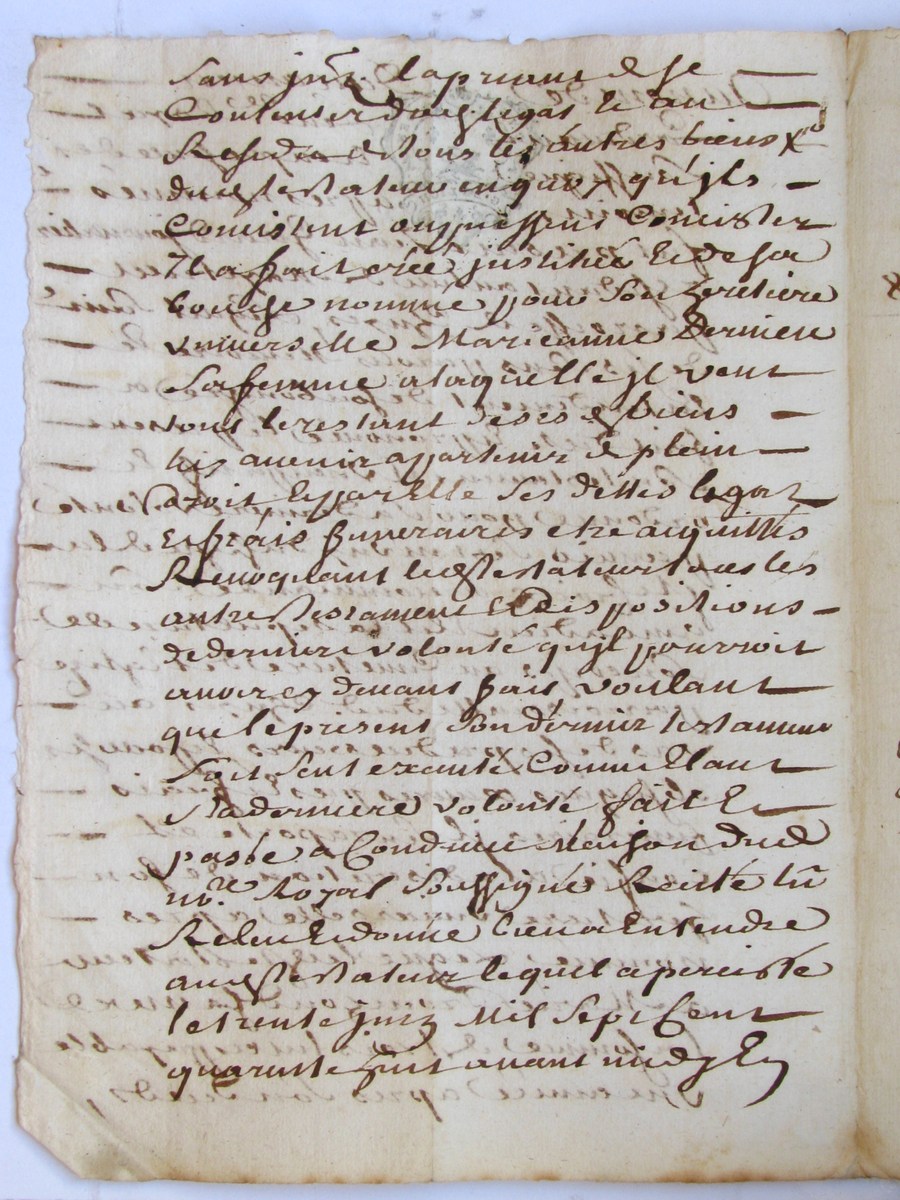 Sans la priant de se
Contenter dud. Legat Et au
Residu de tous les autres biens
dud. testateur en quoy qu'jls
Concistent ou puissent Concister
Jl a fait créé justitué Et de sa
bouche nommé pour Son heretiere
vniverselle Marieanne Derniere
Sa femme a laquelle jl veut
tous le restant de ses d. biens
avenir appartenir de plein
droit Et par Elle Ses dettes Legat
Et frais funeraires etre acquittés
Revoquant led. testateur tous les
autres testament Et Dispositions
de derniere volonté qu'jl pourroit
avoir cy devant fait voulant
que le present Son dernier testament
Soit Seul exauté Comme Etant
Sa derniere volonté fait Et
passé a Condrieu Maison dud.
no.re Royal Soussigné Recité lû
Relu Et donné a Entendre
aud. testateur lequel a percisté
le trente juin Mil Sept Cent
quarente huit avant midy Et